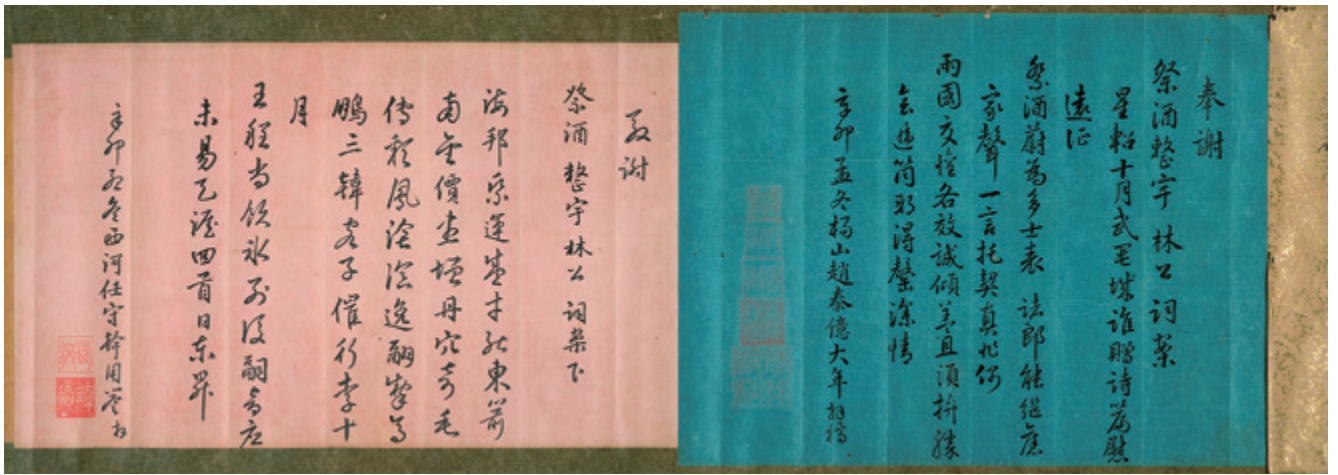 奉謝
祭酒整宇林公詞案
星軺十月武里城誰贈詩篇慰
遠征
祭酒蔚為多士表 法郎能繼舊
家聲一言托契真非偶
兩國交懽各效誠傾蓋且須拚勝
會進簡那得罄深情
辛卯孟冬楊山趙泰億大年拜稿
敬謝
祭酒整宇林公詞案下
海邦
南金價直增丹穴奇毛
傳彩風滄溟逸翮擊高
鵬三韓客子催行李十
月
王程尚飲氷別後嗣音應
未易天涯回首日東昇
辛卯孟冬西河任守幹用譽拜